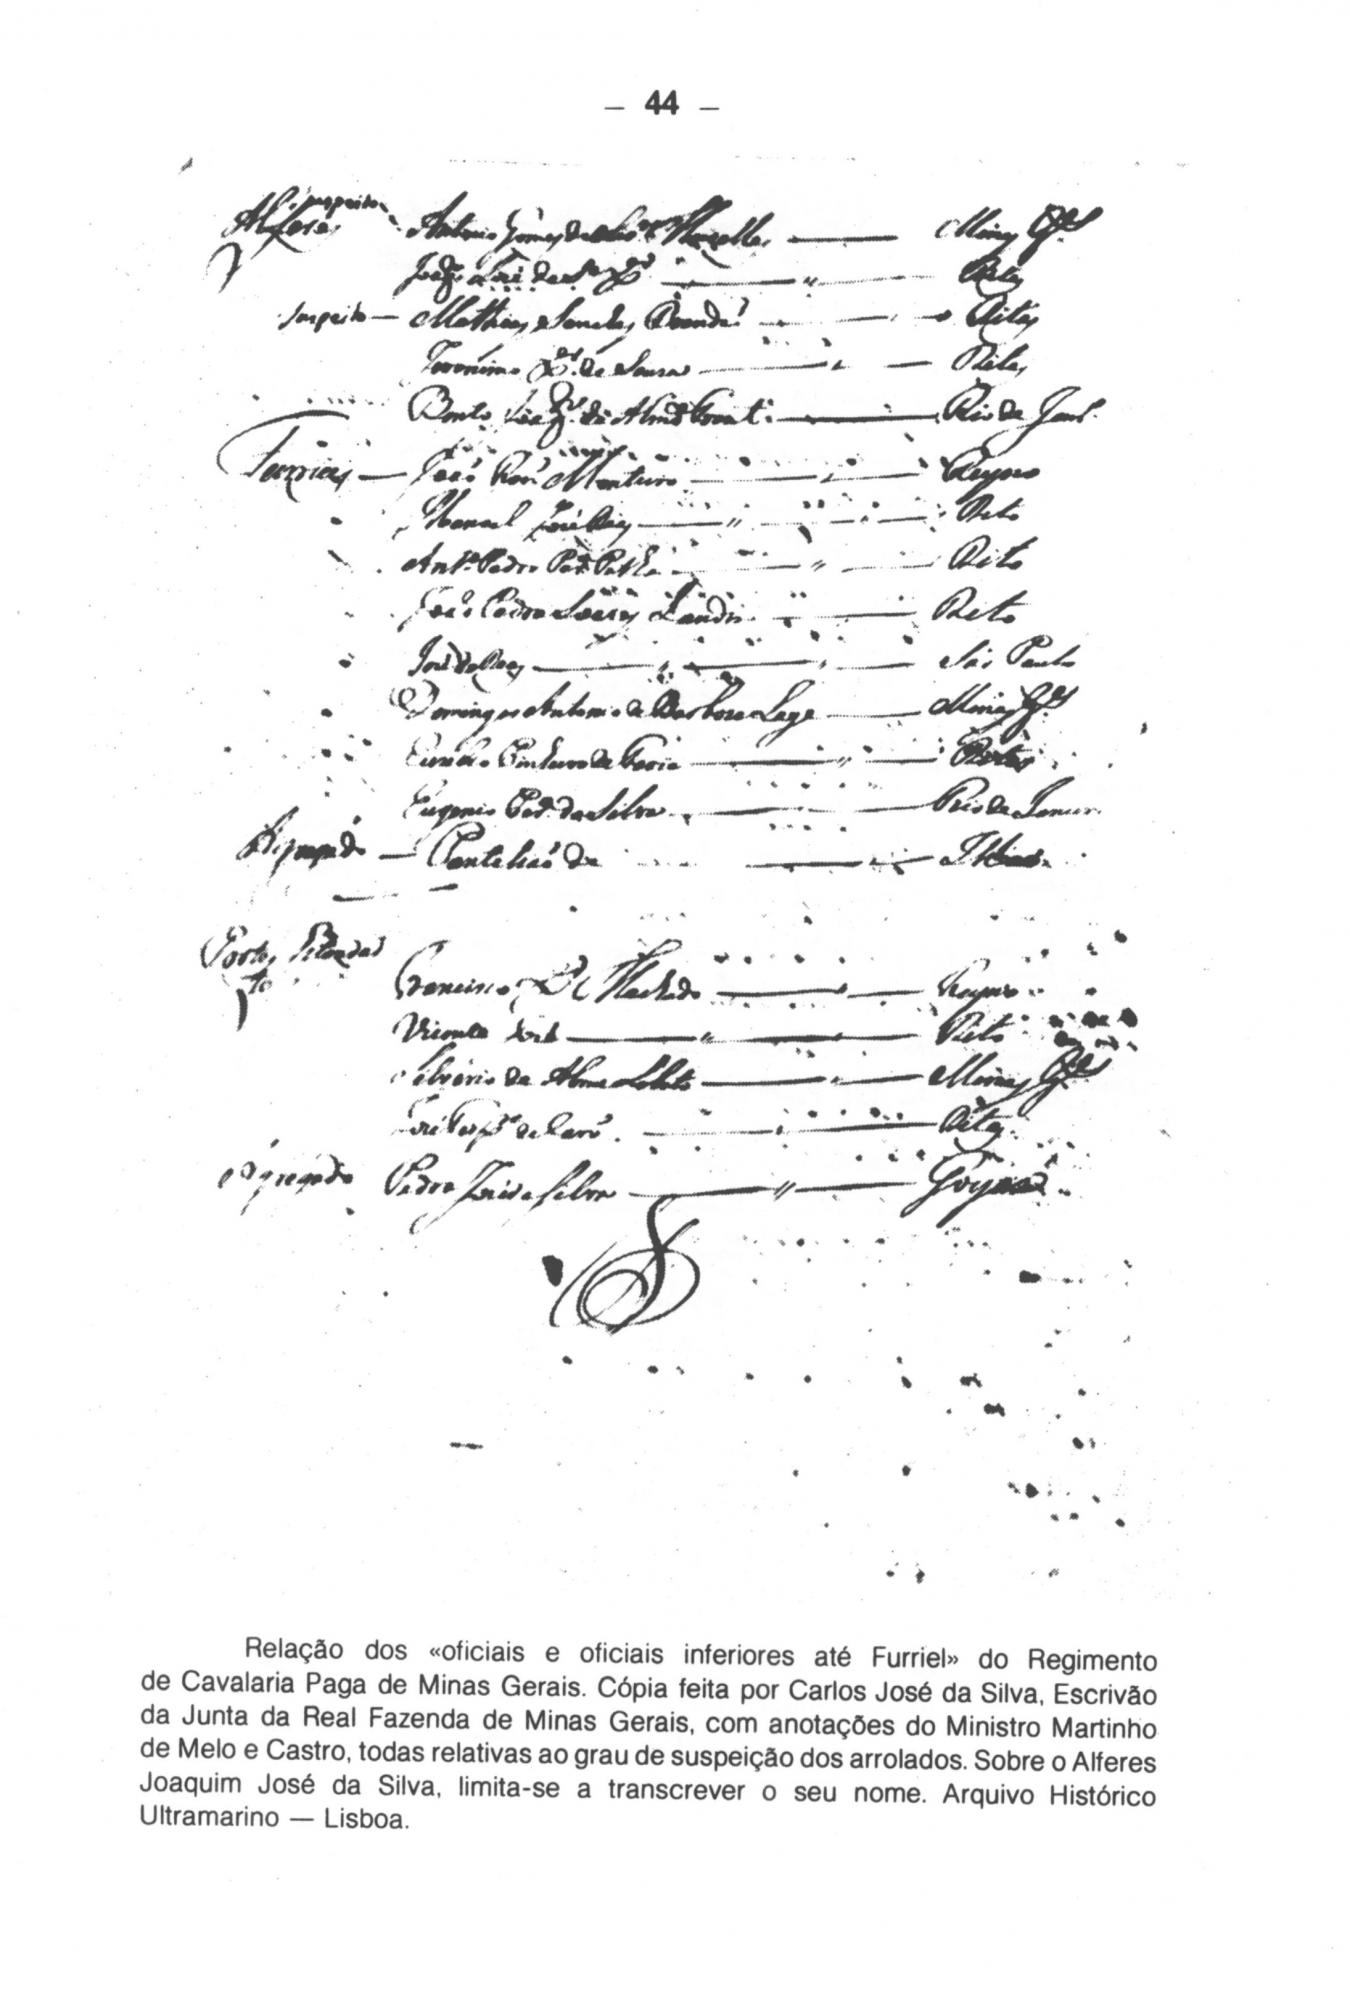 – 44 –
suspeito
Alferes Antonio Gomes Meirelles Minas Gs
Joaqm José da Sa Xer " Ditas
suspeito Mathias Sanches Brandaõ Ditas
Jeronimo Xer. de Souza " Ditas
Bento Joaqm. de Almda Rio de Janro.
Furrieis Joaõ Roiz Monteiro " Reyno
Manoel José Dias " Dito
Anto. Pedro " Dito
Joaõ Pedro Soares " Dito
José " " Saõ Paulo
Domingos Antonio de Barbosa Lage Minas Gs
de Faria " Ditas
Eugenio da Silva " Rio de Janeiro
Agregado Pantaliaõ da " Ilhas
Portas Estandartes
Francisco Xer Machado " Reyno
Vicente José " " Dito
Silverio da " Minas Gs
José " Ditas
Agregado Pedro José da Silva " Goyaz
Relação dos «oficiais e oficiais inferiores até Furriel» do Regimento
de Cavalaria Paga de Minas Gerais. Cópia feita por Carlos José da Silva, Escrivão
da Junta da Real Fazenda de Minas Gerais, com anotações do Ministro Martinho
de Melo e Castro, todas relativas ao grau de suspeição dos arrolados. Sobre o Alferes
Joaquim José da Silva, limita-se a transcrever o seu nome. Arquivo Histórico
Ultramarino — Lisboa.